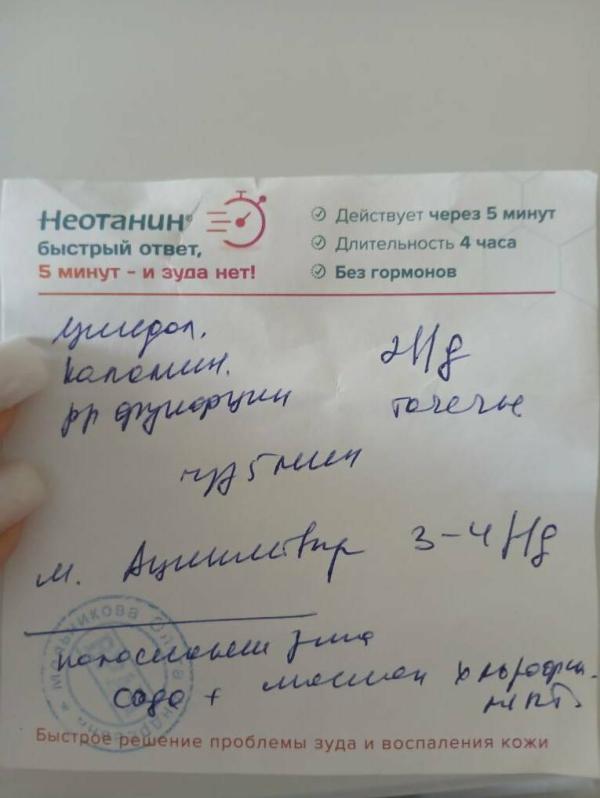 Неотанин®
быстрый ответ,
5 минут - и зуда нет!
Действует через 5 минут
Длительность 4 часа
Без гормонов
Циндол.
Каламин. 2//д
рр фукорцин точечно
чз 5 мин
м. Ацикловир 3-4//д
полоскание рта
сода +
Мельникова
Быстрое решение проблемы зуда и воспаления кожи